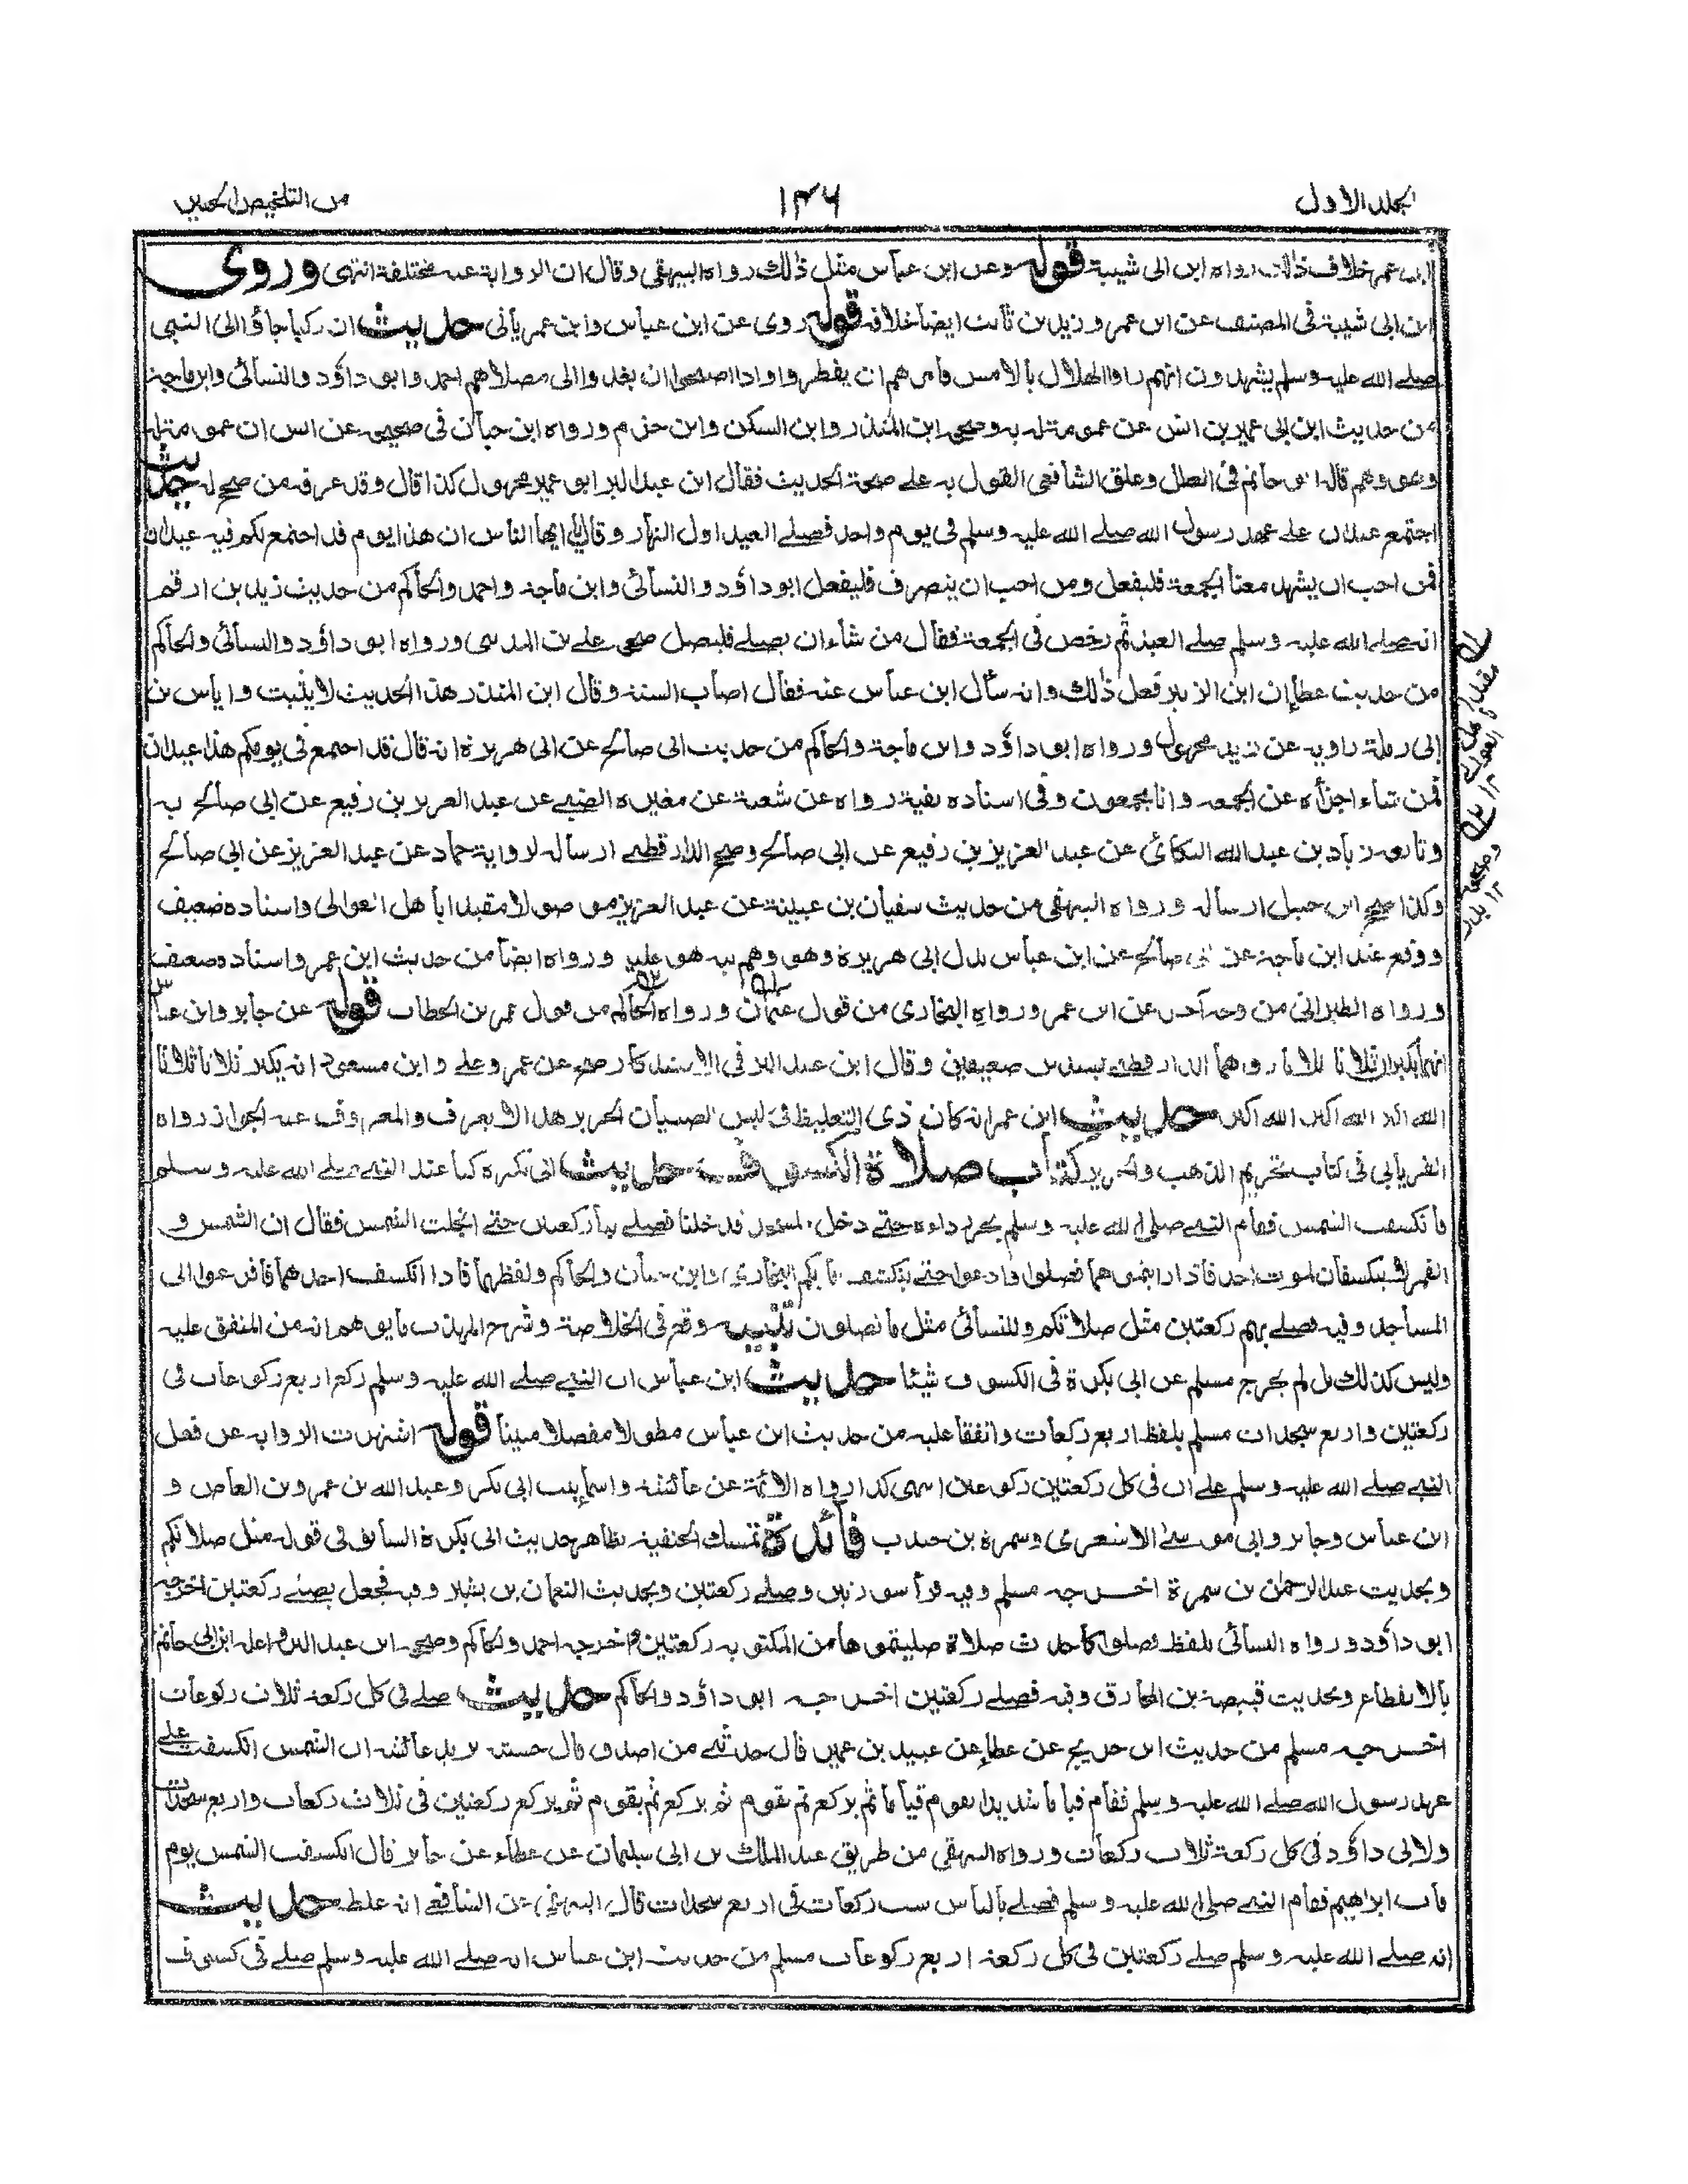 الجلد الاول
١٤٦
من التلخيص الحبير
ابن عمر خلاف ذالك رواه ابن ابى شيبة قوله وعن ابن عباس مثل ذلك رواه البيهقى وقال ان الرواية عنه مختلفة انتهى وروى
ابن ابى شيبة فى المصنف عن ابن عمر وزيد بن ثابت ايضا خلافه قوله روى عن ابن عباس وابن عمر يأتى حديث ان ركبا جاؤ الى النبى
صلے الله عليه وسلم يشهدون انهم راوا الهلال بالامس فامرهم ان يفطروا واذا اصبحوا ان يغدوا الى مصلاهم احمد وابو داؤد والنسائى وابن ماجة
من حديث ابن ابى عمير بن انس عن عمومته به وصححه ابن المنذر وابن السكن وابن حزم ورواه ابن حبان فى صحيحه عن انس ان عمومته
وهو وهم قاله ابو حاتم فى العلل وعلق الشافعى القول به علے صحة الحديث فقال ابن عبد البر ابو عمير مجهول كذا قال وقد عرفه من صحح له حديث
اجتمع عيدان علے عهد رسول الله صلے الله عليه وسلم فى يوم واحد فصلے العيد اول النهار وقال يا ايها الناس ان هذا يوم قد اجتمع لكم فيه عيدان
فمن احب ان يشهد معنا الجمعة فليفعل ومن احب ان ينصرف فليفعل ابو داؤد والنسائى وابن ماجة واحمد والحاكم من حديث زيد بن ارقم
انه صلے الله عليه وسلم صلے العيد ثم رخص فى الجمعة فقال من شاء ان يصلے فليصل صححه علے بن المدينى ورواه ابو داؤد والنسائى والحاكم
من حديث عطاء ان ابن الزبير فعل ذلك وانه سأل ابن عباس عنه فقال اصاب السنة وقال ابن المنذر هذا الحديث لا يثبت واياس بن
ابى رملة راويه عن زيد مجهول ورواه ابو داؤد وابن ماجة والحاكم من حديث ابى صالح عن ابى هريرة انه قال قد اجتمع فى يومكم هذا عيدان
فمن شاء اجزأه عن الجمعة وانا مجمعون وفى اسناده بقية رواه عن شعبة عن مغيرة الضبے عن عبد العزيز بن رفيع عن ابى صالح به
وتابعه زياد بن عبد الله البكائى عن عبد العزيز بن رفيع عن ابى صالح وصحح الدارقطنے ارساله لرواية حماد عن عبد العزيز عن ابى صالح
وكذا صحح ابن حنبل ارساله ورواه البيهقى من حديث سفيان بن عيينة عن عبد العزيز موصولا مقيدا بأهل العوالى واسناده ضعيف
ووقع عند ابن ماجة عن ابى صالح عن ابن عباس بدل ابى هريرة وهو وهم نبه هو عليه ورواه ايضا من حديث ابن عمر واسناده ضعيف
ورواه الطبرانى من وجه آخر عن ابن عمر ورواه البخارى من قول عثمان ورواه الحاكم من قول عمر بن الخطاب قوله عن جابر وابن عباس
انهما يكبران ثلاثا ثلاثا رواهما الدارقطنے بسندين ضعيفين وقال ابن عبد البر فى الاستذكار صح عن عمر وعلے وابن مسعود انه يكبر ثلاثا ثلاثا
الله اكبر الله اكبر الله اكبر حديث ابن عمر انه كان ذى التغليظ فى لبس الصبيان الحرير هذا لا يعرف والمعروف عنه الجواز رواه
الفريابى فى كتاب تحريم الذهب والحرير كتاب صلاة الكسوف حديث ابى بكرة كنا عند النبے صلے الله عليه وسلم
فانكسفت الشمس فقام النبے صلے الله عليه وسلم يجر رداءه حتے دخل المسجد فدخلنا فصلے بنا ركعتين حتے انجلت الشمس فقال ان الشمس و
القمر لا ينكسفان لموت احد فاذا رايتموهما فصلوا وادعوا حتے ينكشف ما بكم البخارى وابن حبان والحاكم ولفظهما فاذا انكسف احدهما فافزعوا الى
المساجد وفيه فصلے بهم ركعتين مثل صلاتكم وللنسائى مثل ما تصلون تنبيه وقع فى الخلاصة وشرح المهذب ما يوهم انه من المتفق عليه
وليس كذلك بل لم يخرج مسلم عن ابى بكرة فى الكسوف شيئا حديث ابن عباس ان النبے صلے الله عليه وسلم ركع اربع ركوعات فى
ركعتين واربع سجدات مسلم بلفظ اربع ركعات واتفقا عليه من حديث ابن عباس مطولا مفصلا مبينا قوله اشتهرت الرواية عن فعل
النبے صلے الله عليه وسلم علے ان فى كل ركعتين ركوعان انتهى كذا رواه الائمة عن عائشة واسماء بنت ابى بكر وعبد الله بن عمرو بن العاص و
ابن عباس وجابر وابى موسے الاشعرى وسمرة بن جندب فائدة تمسك الحنفية بظاهر حديث ابى بكرة السابق فى قوله مثل صلاتكم
وبحديث عبد الرحمن بن سمرة اخرجه مسلم وفيه قرأ سورتين وصلے ركعتين وبحديث النعمان بن بشير وفيه فجعل يصلے ركعتين اخرجه
ابو داؤد ورواه النسائى بلفظ فصلوا كاحدث صلاة صليتموها من المكتوبه ركعتين واخرجه احمد والحاكم وصححه ابن عبد البر واعله ابن ابى حاتم
بالانقطاع وبحديث قبيصة بن المخارق وفيه فصلے ركعتين اخرجه ابو داؤد والحاكم حديث صلے فى كل ركعة ثلاث ركوعات
اخرجه مسلم من حديث ابن جريج عن عطاء عن عبيد بن عمير قال حدثنے من اصدق قال حسبته يريد عائشة ان الشمس انكسفت علے
عهد رسول الله صلے الله عليه وسلم فقام قياما شديدا يقوم قياما ثم يركع ثم يقوم ثم يركع ثم يقوم ثم يركع ركعتين فى ثلاث ركعات واربع سجدات
ولابى داؤد فى كل ركعة ثلاث ركعات ورواه البيهقى من طريق عبد الملك بن ابى سليمان عن عطاء عن جابر قال انكسفت الشمس يوم
مات ابراهيم فقام النبے صلے الله عليه وسلم فصلے بالناس ست ركعات فى اربع سجدات قال البيهقى عن الشافعے انه غلط حديث
انه صلے الله عليه وسلم صلے ركعتين فى كل ركعة اربع ركوعات مسلم من حديث ابن عباس انه صلے الله عليه وسلم صلے فى كسوف